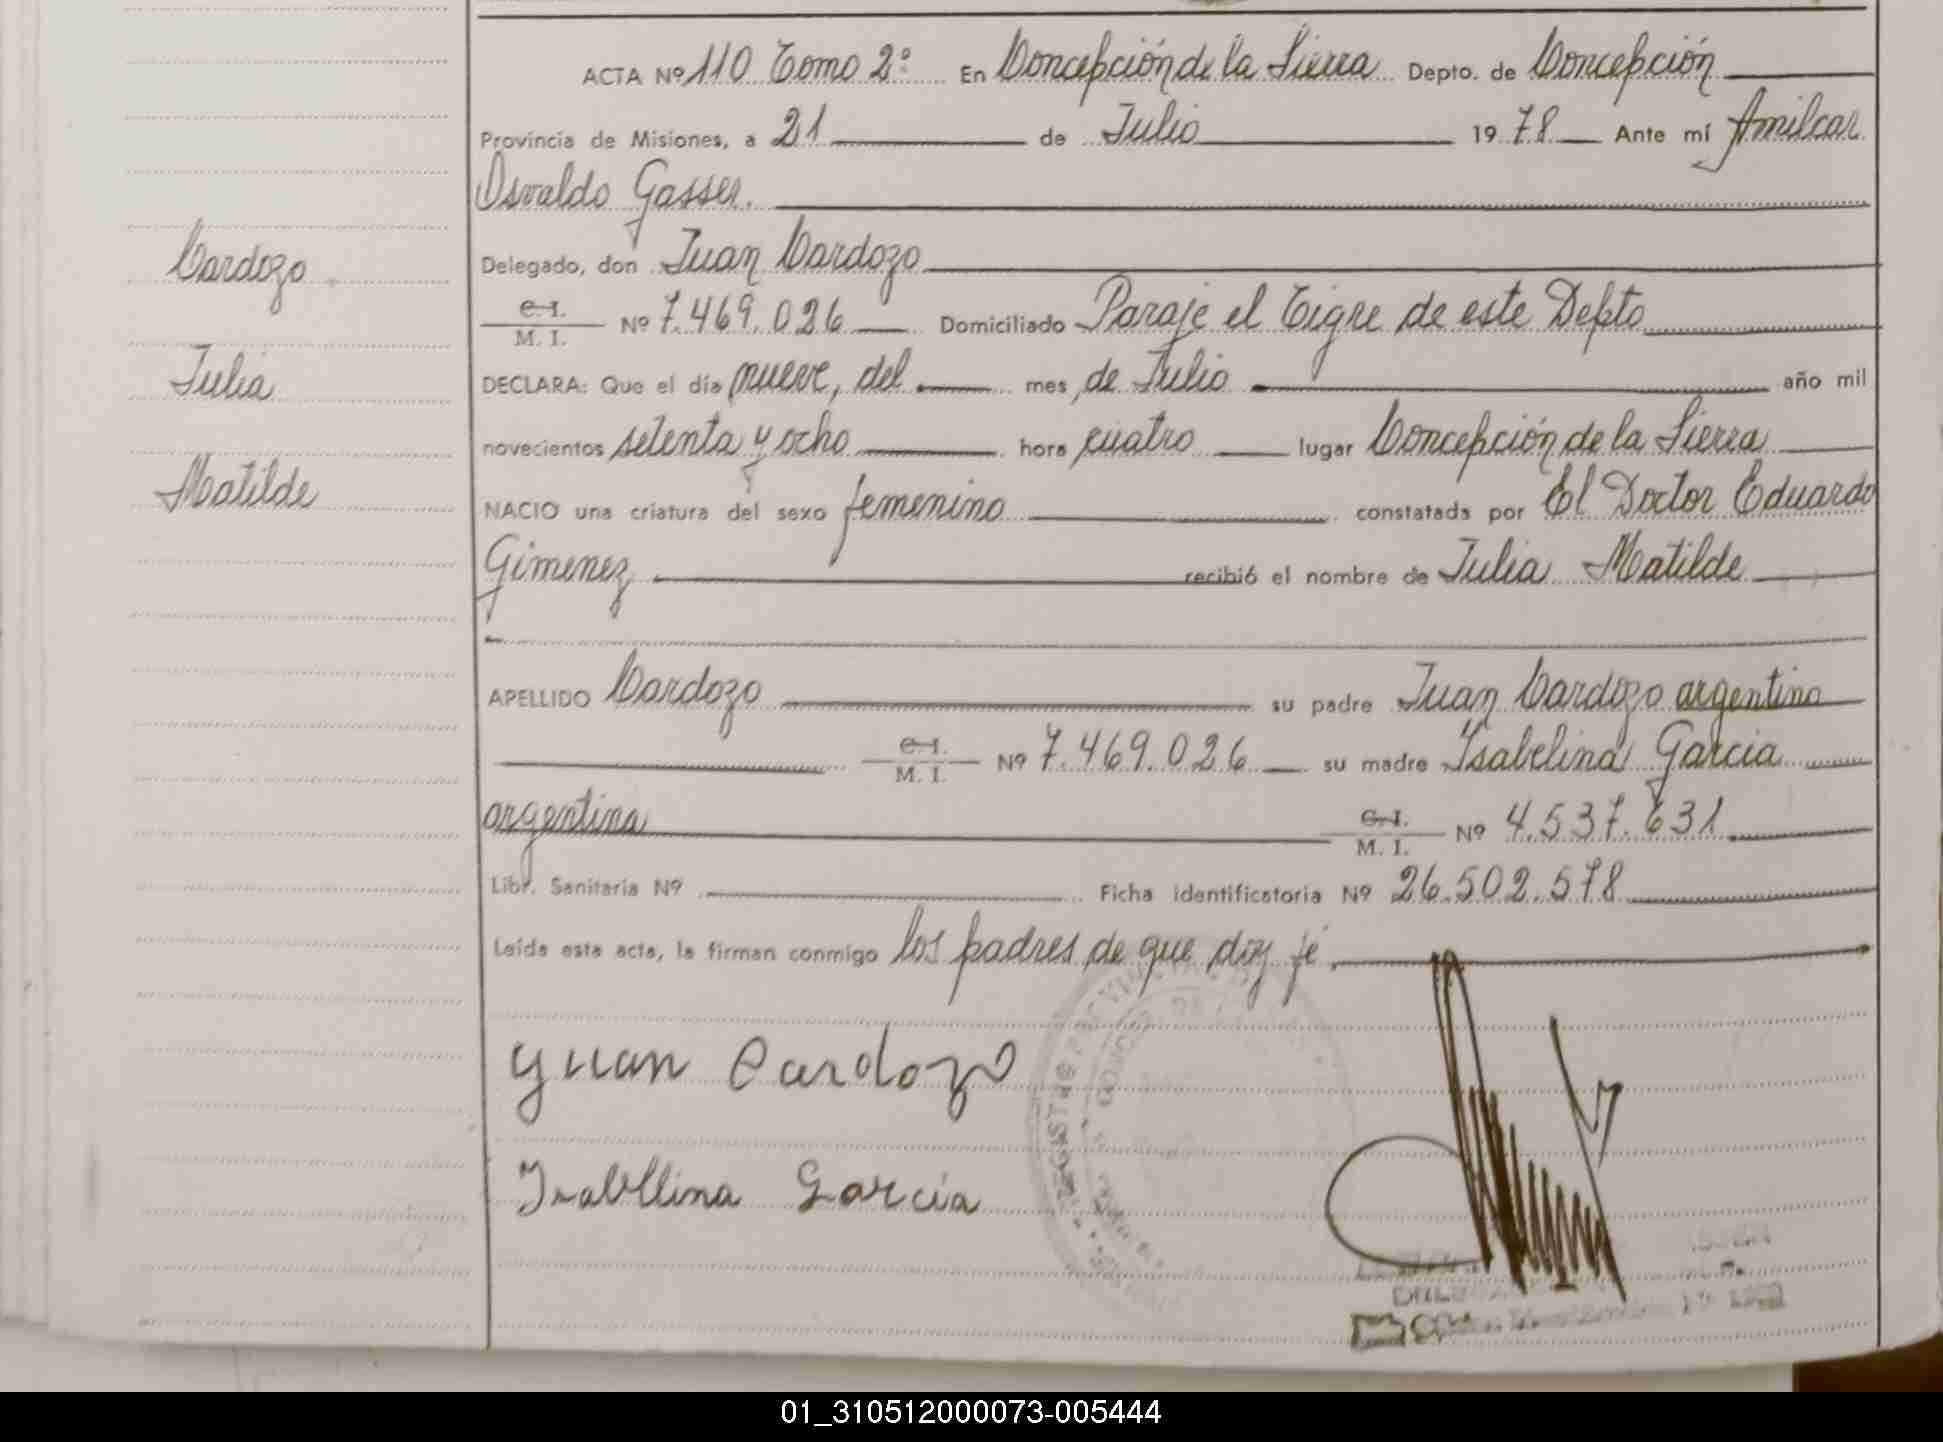 ACTA Nº 110 Tomo 2º En Concepción de la Sierra Depto. de Concepción
Provincia de Misiones, a 21 de Julio 1978 Ante mí Amilcar
Osvaldo Gasser.
Cardozo
Delegado, don Juan Cardozo
C.I.
M. I. Nº 7.469.026 Domiciliado Paraje el Tigre de este Depto
Julia
DECLARA: Que el día nueve, del mes, de Julio año mil
novecientos setenta y ocho hora cuatro lugar Concepción de la Sierra
Matilde
NACIO una criatura del sexo femenino constatada por El Doctor Eduardo
Gimenez recibió el nombre de Julia Matilde
APELLIDO Cardozo su padre Juan Cardozo argentino
C.I.
M. I. Nº 7.469.026 su madre Isabelina Garcia
argentina C.I.
M. I. Nº 4.537.631
Libr. Sanitaria Nº Ficha identificatoria Nº 26.502.578
Leída esta acta, la firman conmigo los padres de que doy fé.
Juan Cardozo
Isabelina Garcia
01_310512000073-005444